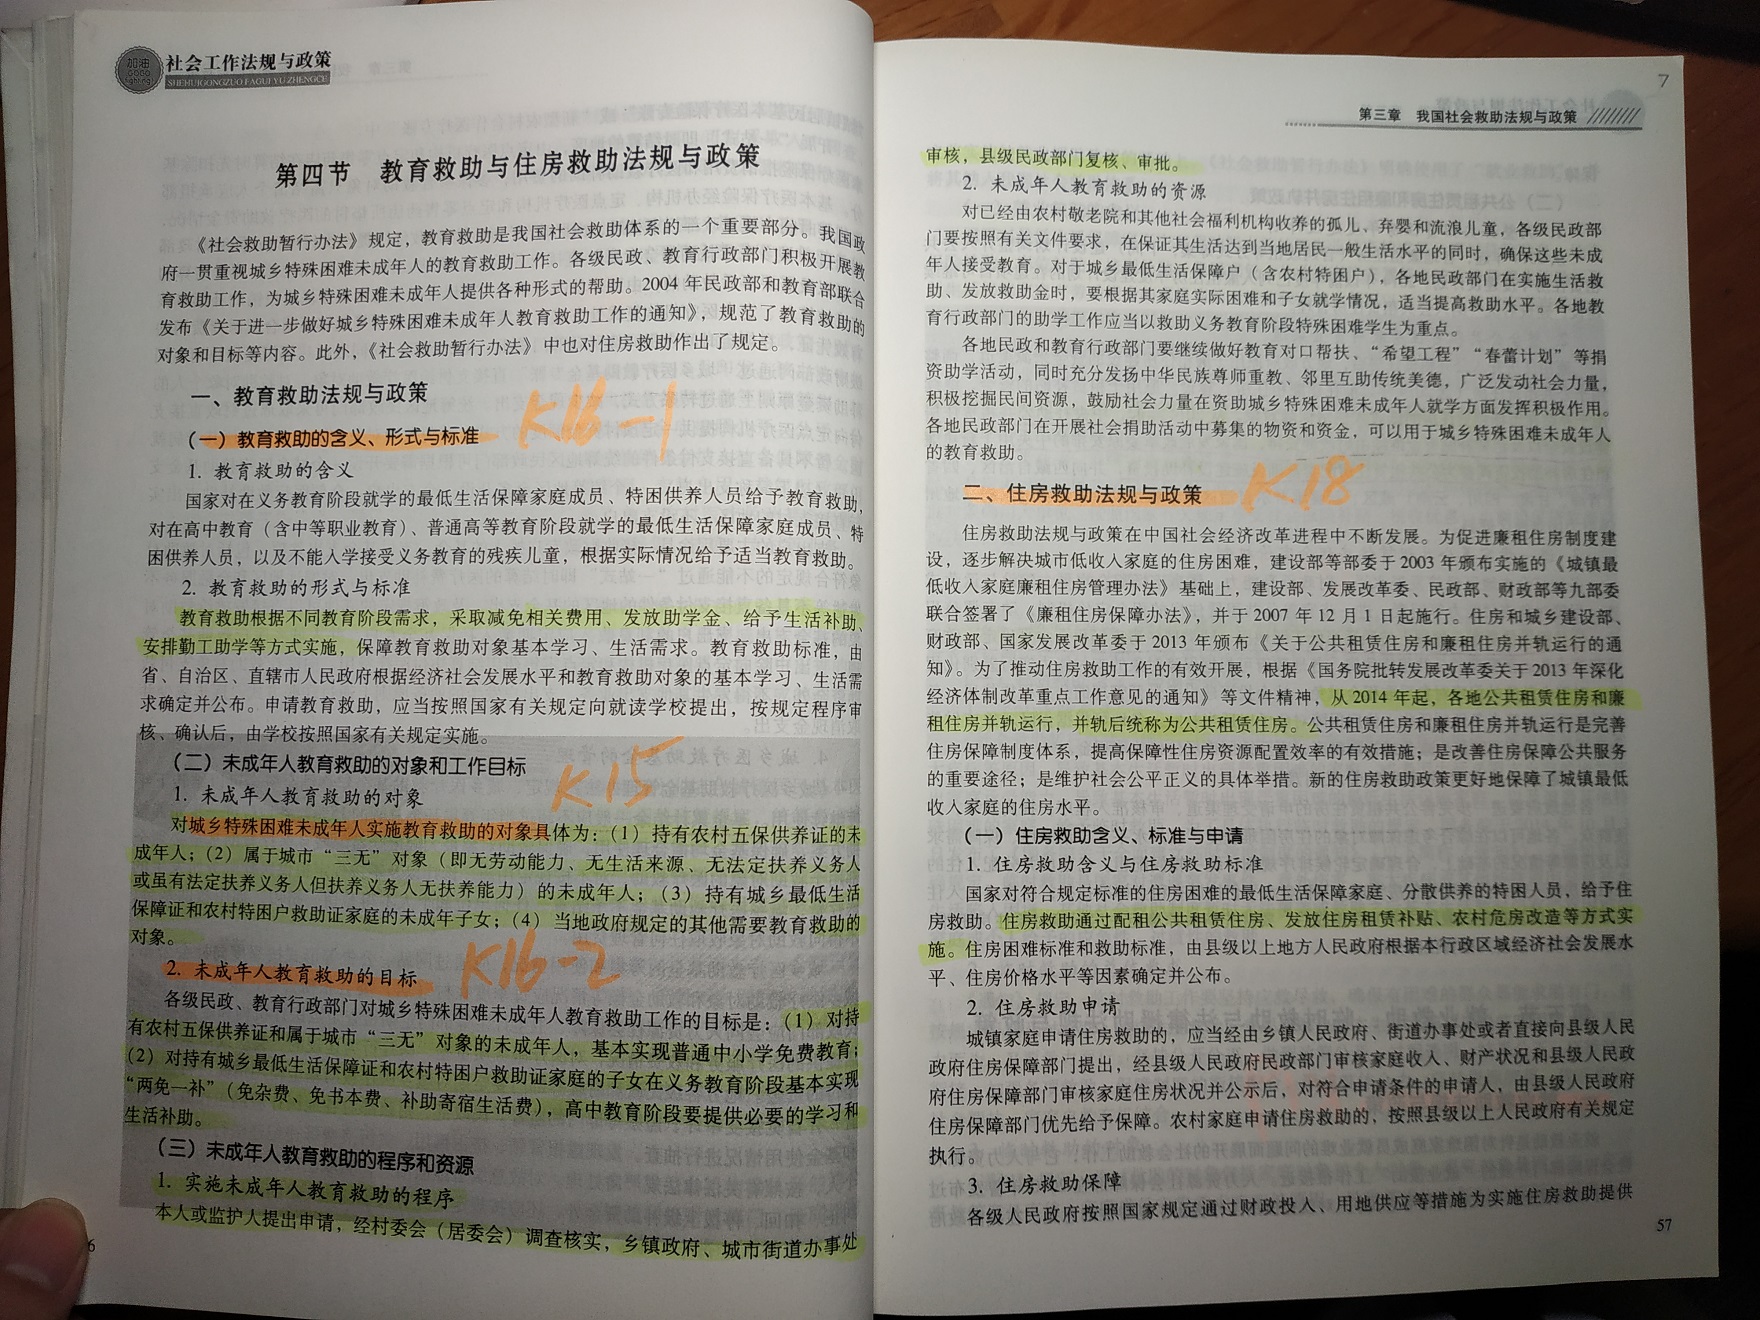 加油
GOOD
fighting!
社会工作法规与政策
SHEHUIGONGZUO FAGUI YU ZHENGCE
第四节 教育救助与住房救助法规与政策
《社会救助暂行办法》规定，教育救助是我国社会救助体系的一个重要部分。我国政
府一贯重视城乡特殊困难未成年人的教育救助工作。各级民政、教育行政部门积极开展教
育救助工作，为城乡特殊困难未成年人提供各种形式的帮助。2004 年民政部和教育部联合
发布《关于进一步做好城乡特殊困难未成年人教育救助工作的通知》，规范了教育救助的
对象和目标等内容。此外，《社会救助暂行办法》中也对住房救助作出了规定。
一、教育救助法规与政策
K16-1
（一）教育救助的含义、形式与标准
1. 教育救助的含义
国家对在义务教育阶段就学的最低生活保障家庭成员、特困供养人员给予教育救助，
对在高中教育（含中等职业教育）、普通高等教育阶段就学的最低生活保障家庭成员、特
困供养人员，以及不能入学接受义务教育的残疾儿童，根据实际情况给予适当教育救助。
2. 教育救助的形式与标准
教育救助根据不同教育阶段需求，采取减免相关费用、发放助学金、给予生活补助、
安排勤工助学等方式实施，保障教育救助对象基本学习、生活需求。教育救助标准，由
省、自治区、直辖市人民政府根据经济社会发展水平和教育救助对象的基本学习、生活需
求确定并公布。申请教育救助，应当按照国家有关规定向就读学校提出，按规定程序审
核、确认后，由学校按照国家有关规定实施。
（二）未成年人教育救助的对象和工作目标
K15
1. 未成年人教育救助的对象
对城乡特殊困难未成年人实施教育救助的对象具体为：（1）持有农村五保供养证的未
成年人；（2）属于城市“三无”对象（即无劳动能力、无生活来源、无法定扶养义务人
或虽有法定扶养义务人但扶养义务人无扶养能力）的未成年人；（3）持有城乡最低生活
保障证和农村特困户救助证家庭的未成年子女；（4）当地政府规定的其他需要教育救助的
对象。
2. 未成年人教育救助的目标
K16-2
各级民政、教育行政部门对城乡特殊困难未成年人教育救助工作的目标是：（1）对持
有农村五保供养证和属于城市“三无”对象的未成年人，基本实现普通中小学免费教育；
（2）对持有城乡最低生活保障证和农村特困户救助证家庭的子女在义务教育阶段基本实现
“两免一补”（免杂费、免书本费、补助寄宿生活费），高中教育阶段要提供必要的学习和
生活补助。
（三）未成年人教育救助的程序和资源
1. 实施未成年人教育救助的程序
本人或监护人提出申请，经村委会（居委会）调查核实，乡镇政府、城市街道办事处
6
7
第三章 我国社会救助法规与政策
审核，县级民政部门复核、审批。
2. 未成年人教育救助的资源
对已经由农村敬老院和其他社会福利机构收养的孤儿、弃婴和流浪儿童，各级民政部
门要按照有关文件要求，在保证其生活达到当地居民一般生活水平的同时，确保这些未成
年人接受教育。对于城乡最低生活保障户（含农村特困户），各地民政部门在实施生活救
助、发放救助金时，要根据其家庭实际困难和子女就学情况，适当提高救助水平。各地教
育行政部门的助学工作应当以救助义务教育阶段特殊困难学生为重点。
各地民政和教育行政部门要继续做好教育对口帮扶、“希望工程”“春蕾计划”等捐
资助学活动，同时充分发扬中华民族尊师重教、邻里互助传统美德，广泛发动社会力量，
积极挖掘民间资源，鼓励社会力量在资助城乡特殊困难未成年人就学方面发挥积极作用。
各地民政部门在开展社会捐助活动中募集的物资和资金，可以用于城乡特殊困难未成年人
的教育救助。
二、住房救助法规与政策
K18
住房救助法规与政策在中国社会经济改革进程中不断发展。为促进廉租住房制度建
设，逐步解决城市低收入家庭的住房困难，建设部等部委于 2003 年颁布实施的《城镇最
低收入家庭廉租住房管理办法》基础上，建设部、发展改革委、民政部、财政部等九部委
联合签署了《廉租住房保障办法》，并于 2007 年 12 月 1 日起施行。住房和城乡建设部、
财政部、国家发展改革委于 2013 年颁布《关于公共租赁住房和廉租住房并轨运行的通
知》。为了推动住房救助工作的有效开展，根据《国务院批转发展改革委关于 2013 年深化
经济体制改革重点工作意见的通知》等文件精神，从 2014 年起，各地公共租赁住房和廉
租住房并轨运行，并轨后统称为公共租赁住房。公共租赁住房和廉租住房并轨运行是完善
住房保障制度体系，提高保障性住房资源配置效率的有效措施；是改善住房保障公共服务
的重要途径；是维护社会公平正义的具体举措。新的住房救助政策更好地保障了城镇最低
收入家庭的住房水平。
（一）住房救助含义、标准与申请
1. 住房救助含义与住房救助标准
国家对符合规定标准的住房困难的最低生活保障家庭、分散供养的特困人员，给予住
房救助。住房救助通过配租公共租赁住房、发放住房租赁补贴、农村危房改造等方式实
施。住房困难标准和救助标准，由县级以上地方人民政府根据本行政区域经济社会发展水
平、住房价格水平等因素确定并公布。
2. 住房救助申请
城镇家庭申请住房救助的，应当经由乡镇人民政府、街道办事处或者直接向县级人民
政府住房保障部门提出，经县级人民政府民政部门审核家庭收入、财产状况和县级人民政
府住房保障部门审核家庭住房状况并公示后，对符合申请条件的申请人，由县级人民政府
住房保障部门优先给予保障。农村家庭申请住房救助的，按照县级以上人民政府有关规定
执行。
3. 住房救助保障
各级人民政府按照国家规定通过财政投入、用地供应等措施为实施住房救助提供
57